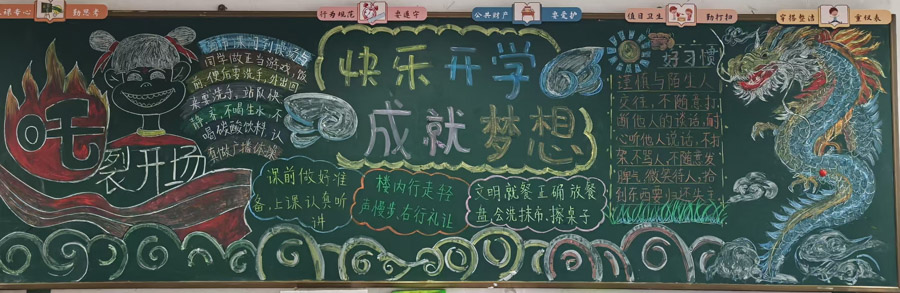 上课专心 勤思考
行为规范 要遵守
公共财产 要爱护
值日卫生 勤打扫
穿搭整洁 重仪表
吒
裂开场
同学做正当游戏,饭
前、便后要洗手,外出回
来要洗手,站队快
静、齐,不喝生水,不
喝碳酸饮料,认
真做广播体操
快乐开学
成就梦想
课前做好准
备,上课认真听
讲
楼内行走轻
声慢步,右行礼让
文明就餐正确放餐
盘,会洗抹布、擦桌子
好习惯
谨慎与陌生人
交往,不随意打
断他人的谈话,耐
心听他人说话,不打
架,不骂人,不随意发
脾气,微笑待人,拾
到东西要归还失主